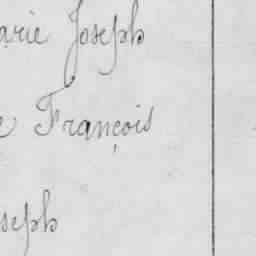 arie Joseph
e François
seph